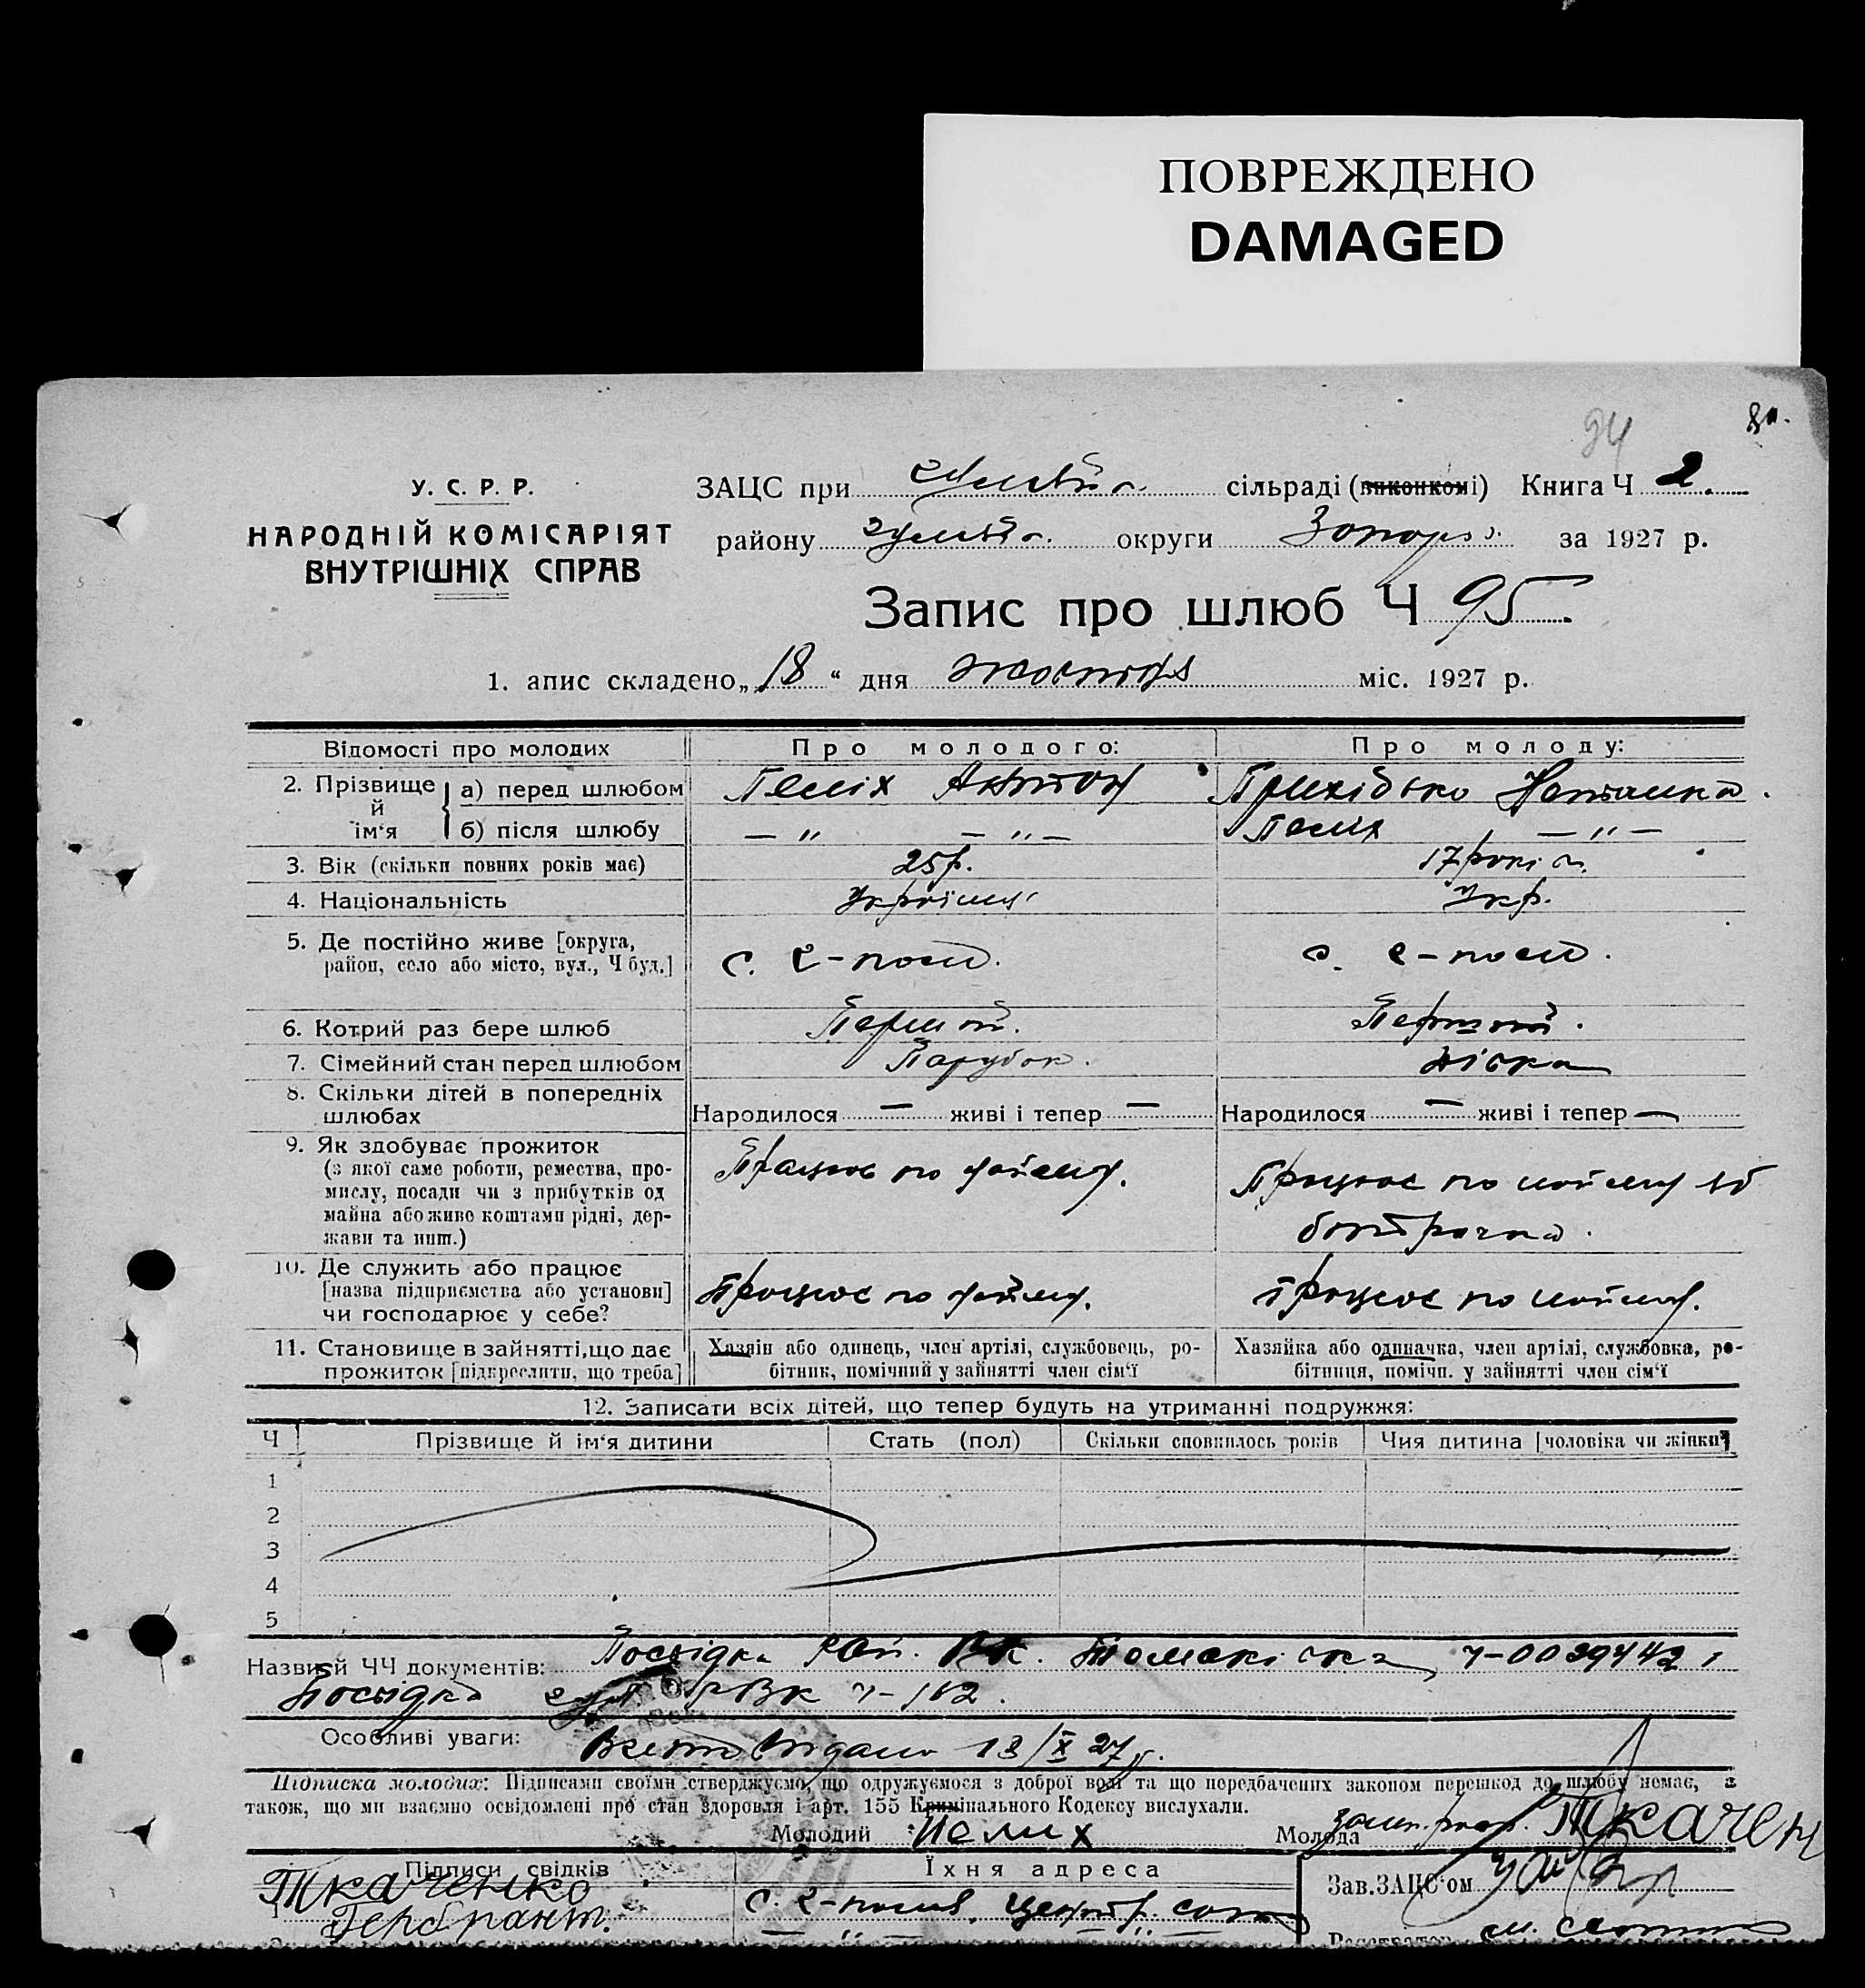 ПОВРЕЖДЕНО
DAMAGED
94
У. С. Р. Р.
НАРОДНІЙ КОМІСАРІЯТ
ВНУТРІШНІХ СПРАВ
ЗАЦС при сільраді (виконкомі) Книга Ч 2.
району округи Запоріз. за 1927 р.
Запис про шлюб Ч 95
1. апис складено „18“ дня жовтня міс. 1927 р.
Відомості про молодих Про молодого: Про молоду:
2. Прізвище й ім‘я а) перед шлюбом Пеліх Антон Прихідько Наталка.
б) після шлюбу — " — " — Пеліх — " —
3. Вік (скільки повних років має) 25 р. 17 років.
4. Національність Українец Укр.
5. Де постійно живе [округа,
район, село або місто, вул., Ч буд.] с. Г-поле. с. Г-поле.
6. Котрий раз бере шлюб Перший. Перший.
7. Сімейний стан перед шлюбом Парубок. дівка
8. Скільки дітей в попередніх
шлюбах Народилося — живі і тепер — Народилося — живі і тепер —
9. Як здобуває прожиток
(з якої саме роботи, ремества, про-
мислу, посади чи з прибутків од
майна або живе коштами рідні, дер-
жави та инш.) Працює по найму. Працює по найму
10. Де служить або працює
[назва підприємства або установи]
чи господарює у себе? Працює по найму. Працює по найму.
11. Становище в зайнятті, що дає
прожиток [підкреслити, що треба] Хазяін або одинець, член артілі, службовець, ро-
бітник, помічний у зайнятті член сім‘ї Хазяйка або одиначка, член артілі, службовка, ро-
бітниця, помічн. у зайнятті член сім‘ї
12. Записати всіх дітей, що тепер будуть на утриманні подружжя:
Ч Прізвище й ім‘я дитини Стать (пол) Скільки сповнилось років Чия дитина [чоловіка чи жінки]
1
2
3
4
5
Назви й ЧЧ документів: Посвідка Рай. ВК. Томаківка Ч-0039442
Посвідка РВК Ч-162.
Особливі уваги: видано 18/X 27 р.
Підписка молодих: Підписами своїми стверджуємо, що одружуємося з доброї волі та що передбачених законом перешкод до шлюбу немає, а
також, що ми взаємно освідомлені про стан здоровля і арт. 155 Кримінального Кодексу вислухали.
Молодий Пелих Молода Ткачен
Підписи свідків Їхня адреса Зав. ЗАЦС‘ом
Ткаченко
1 с. Г-поле, центр. сот
— " — " —
Реєстратор